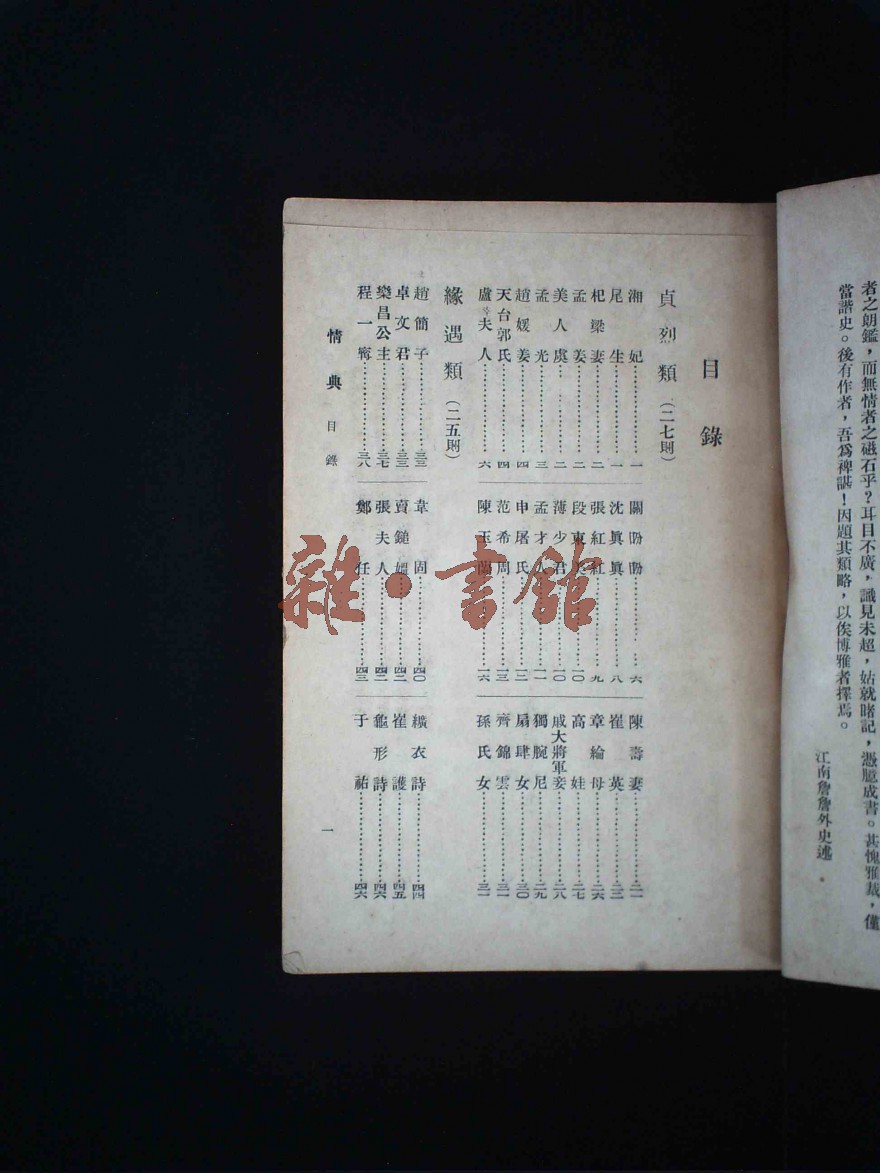 者之朗鑑，而無情者之磁石乎？耳目不廣，識見未超，姑就睹記，憑臆成書。甚愧雅裁，僅
當諧史。後有作者，吾爲裨諶！因題其類略，以俟博雅者擇焉。
江南詹詹外史述
目錄
貞烈類（二七則）
湘妃 一
尾生 一
杞梁妻 二
孟姜 二
美人虞 二
孟光 三
趙媛姜 四
天台郭氏 四
盧夫人 六
關盼盼 六
沈眞眞 八
張紅紅 九
段東美 一〇
薄少君 一〇
孟才人 一一
申屠氏 一二
范希周 一三
陳玉蘭 一六
陳壽妻 二一
崔英 二三
章綸母 二六
高娃 二七
戚大將軍妾 二八
獨腕尼 二九
扇肆女 三〇
齊錦雲 三一
孫氏女 三一
緣遇類（二五則）
趙簡子 三三
卓文君 三三
樂昌公主 三七
程一甯 三八
韋固 四〇
賣䭔媼 四二
張夫人 四二
鄭任 四三
纊衣詩 四四
崔護 四五
龜形詩 四六
于祐 四六
情典 目錄
一
雜·書館